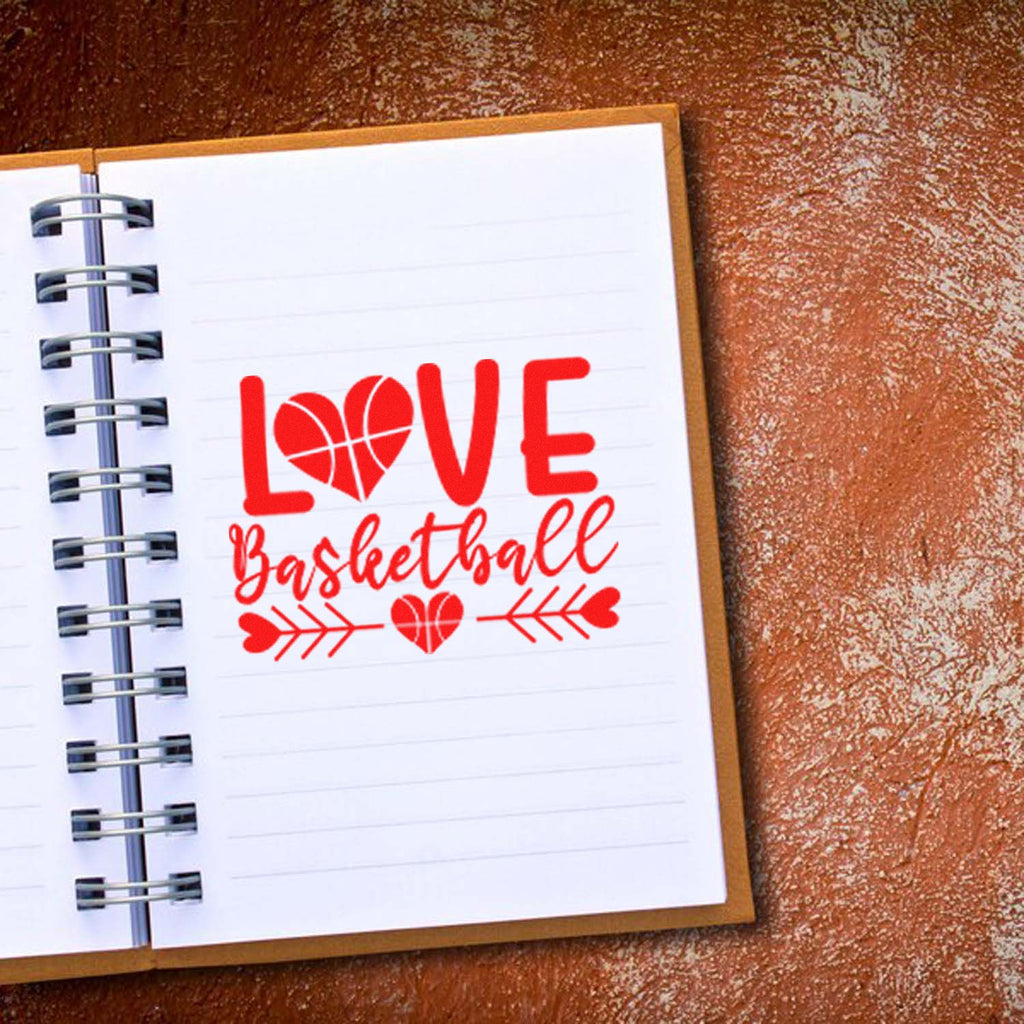 LOVE
Basketball